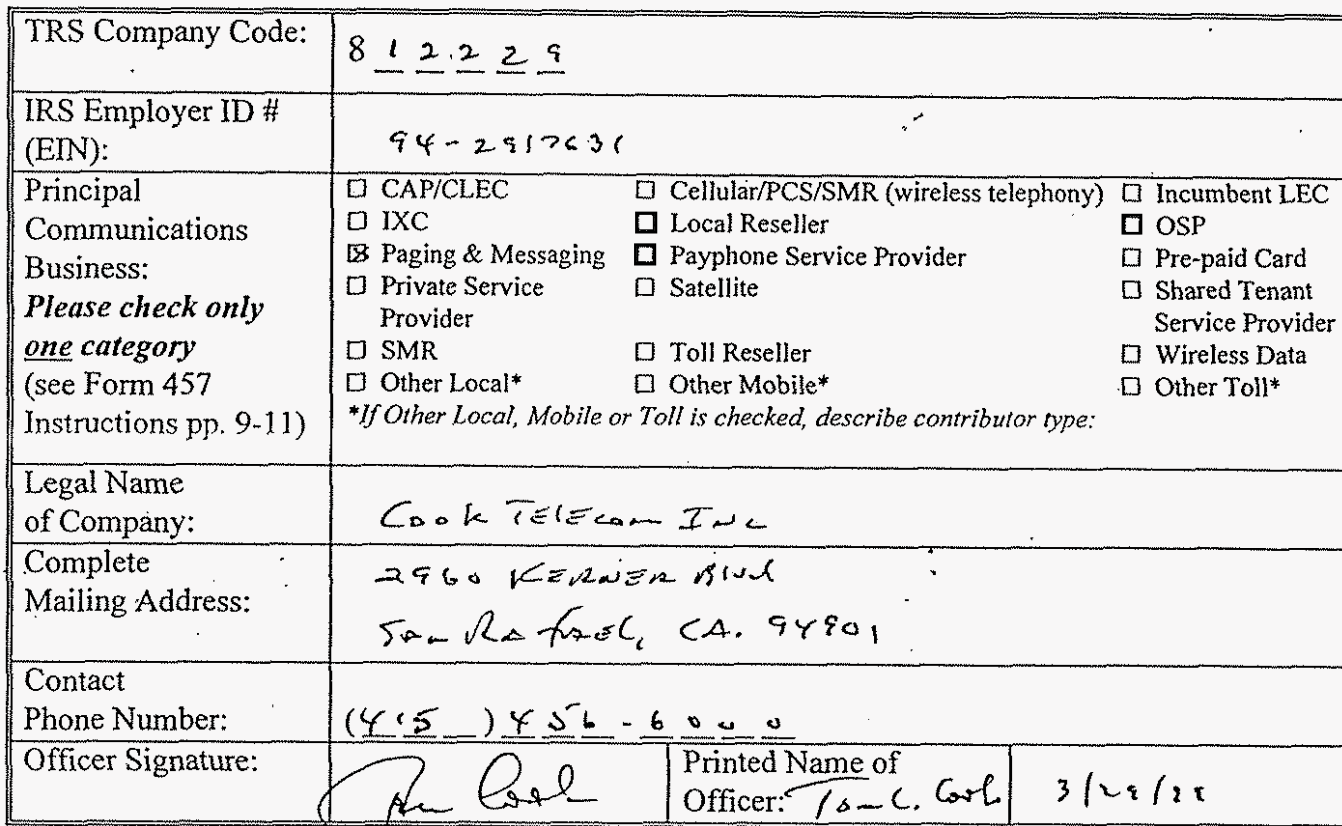 TRS Company Code:
8 1 2 2 2 9
IRS Employer ID #
(EIN):
94-2917631
Principal
Communications
Business:
Please check only
one category
(see Form 457
Instructions pp. 9-11)
☐ CAP/CLEC ☐ Cellular/PCS/SMR (wireless telephony) ☐ Incumbent LEC
☐ IXC ☐ Local Reseller ☐ OSP
☒ Paging & Messaging ☐ Payphone Service Provider ☐ Pre-paid Card
☐ Private Service ☐ Satellite ☐ Shared Tenant
Provider Service Provider
☐ SMR ☐ Toll Reseller ☐ Wireless Data
☐ Other Local* ☐ Other Mobile* ☐ Other Toll*
*If Other Local, Mobile or Toll is checked, describe contributor type:
Legal Name
of Company:
Cook TElEcom Inc
Complete
Mailing Address:
2960 KERNER Blvd
San Rafael, CA. 94901
Contact
Phone Number:
(415) 456-6000
Officer Signature:
Tom Cook
Printed Name of
Officer: Tom C. Cook